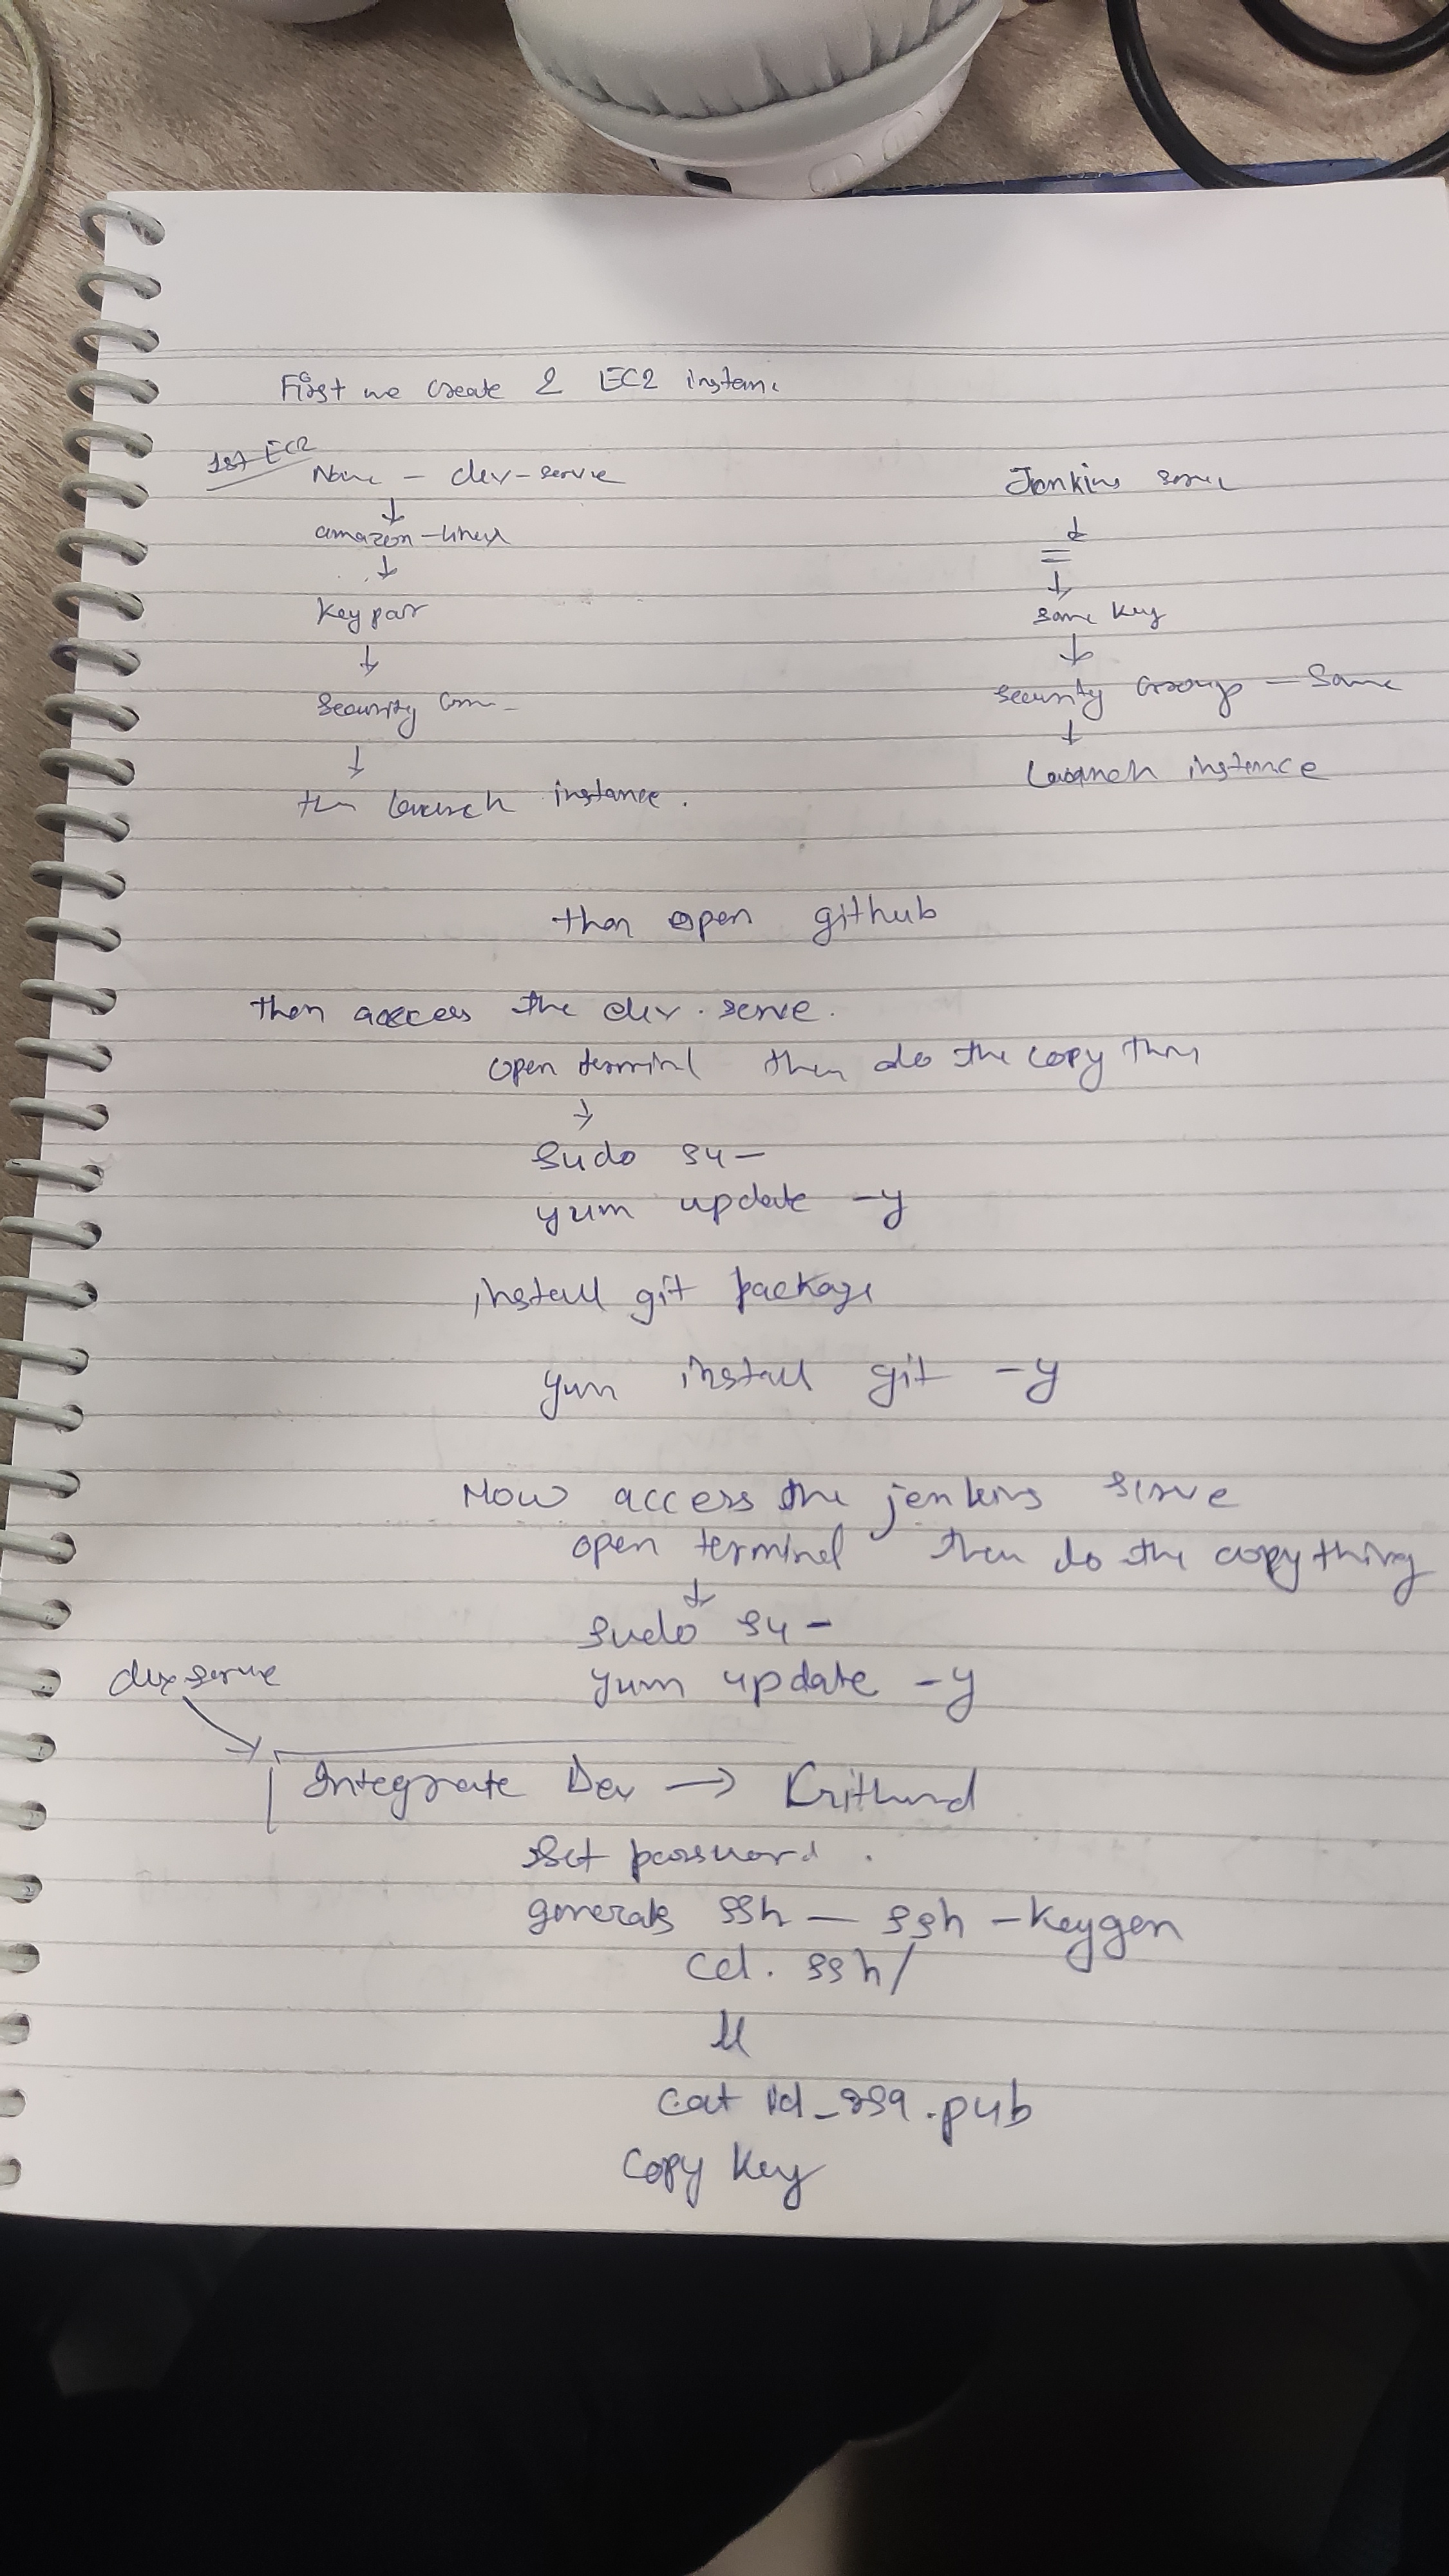 First we create 2 EC2 instanc
1st EC2
Name - dev-serve
↓
amazon-linux
↓
Key pair
↓
Security
↓
then launch instance.
Jenkins serve
↓
=
↓
same key
↓
security Group - Same
↓
Launch instance
then open github
then access the dev. serve.
open terminl then do the copy thin
→
sudo su -
yum update -y
install git package
yum install git -y
Now access the jenkins serve
open terminal then do the copy thing
↓
sudo su -
yum update -y
dev serve
Integrate Dev → Github
Set password.
generate ssh - ssh -keygen
cd .ssh/
ll
cat id_rsa.pub
copy key